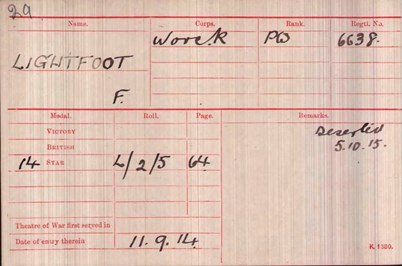 29
Name. Corps. Rank. Regtl. No.
Worc. R PW 6638.
LIGHTFOOT
F.
Medal. Roll. Page. Remarks.
VICTORY
BRITISH
14 STAR L/2/5 64
Deserted
5.10.15.
Theatre of War first served in
Date of entry therein 11.9.14.
K. 1380.